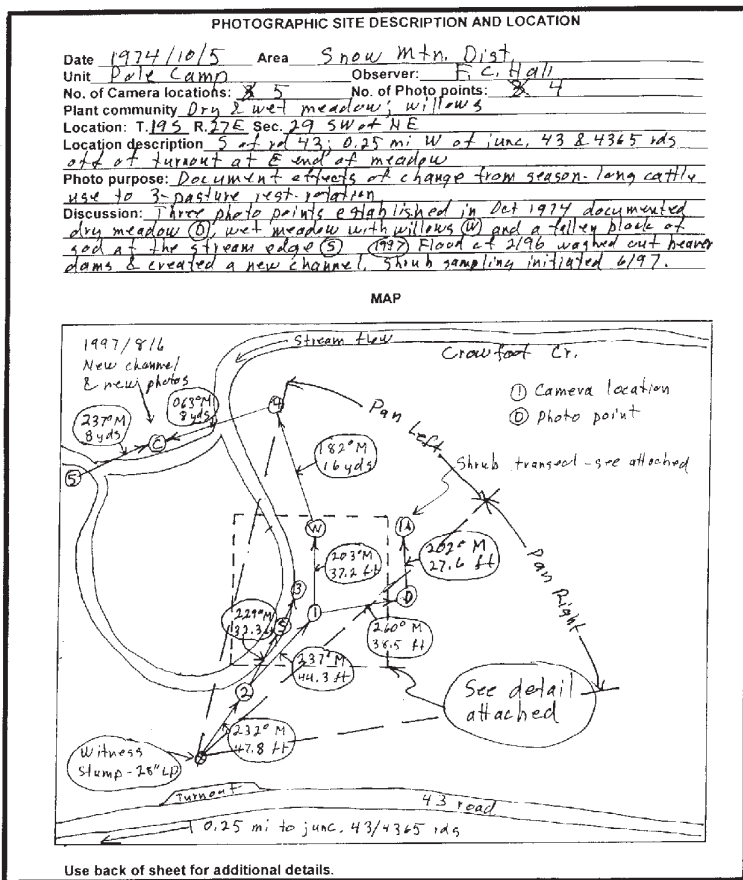 PHOTOGRAPHIC SITE DESCRIPTION AND LOCATION
Date 1974/10/5 Area Snow Mtn. Dist.
Unit Pole Camp Observer: F. C. Hall
No. of Camera locations: 5 No. of Photo points: 4
Plant community Dry & wet meadow; willows
Location: T. 19S R. 27E Sec. 29 SW of NE
Location description S of rd 43; 0.25 mi W of junc. 43 & 4365 rds
off of turnout at E end of meadow
Photo purpose: Document effects of change from season-long cattle
use to 3-pasture rest-rotation
Discussion: Three photo points established in Oct 1974 documented
dry meadow (D), wet meadow with willows (W) and a fallen block of
sod at the stream edge (S) (1997) Flood of 2/96 washed out beaver
dams & created a new channel. Shrub sampling initiated 6/97.
MAP
1997/8/6
New channel
& new photos
Stream flow
Crowfoot Cr.
1 Camera location
D Photo point
063°M
8 yds
237°M
8 yds
C
4
5
Pan Left
182°M
16 yds
Shrub transect - see attached
W
1A
203°M
37.2 ft
202° M
27.6 ft
Pan Right
3
D
229°M
32.3 ft
S
1
260° M
38.5 ft
237° M
44.3 ft
2
See detail
attached
232° M
47.8 ft
Witness
Stump - 28" LP
Turnout
43 road
0.25 mi to junc. 43/4365 rds
Use back of sheet for additional details.